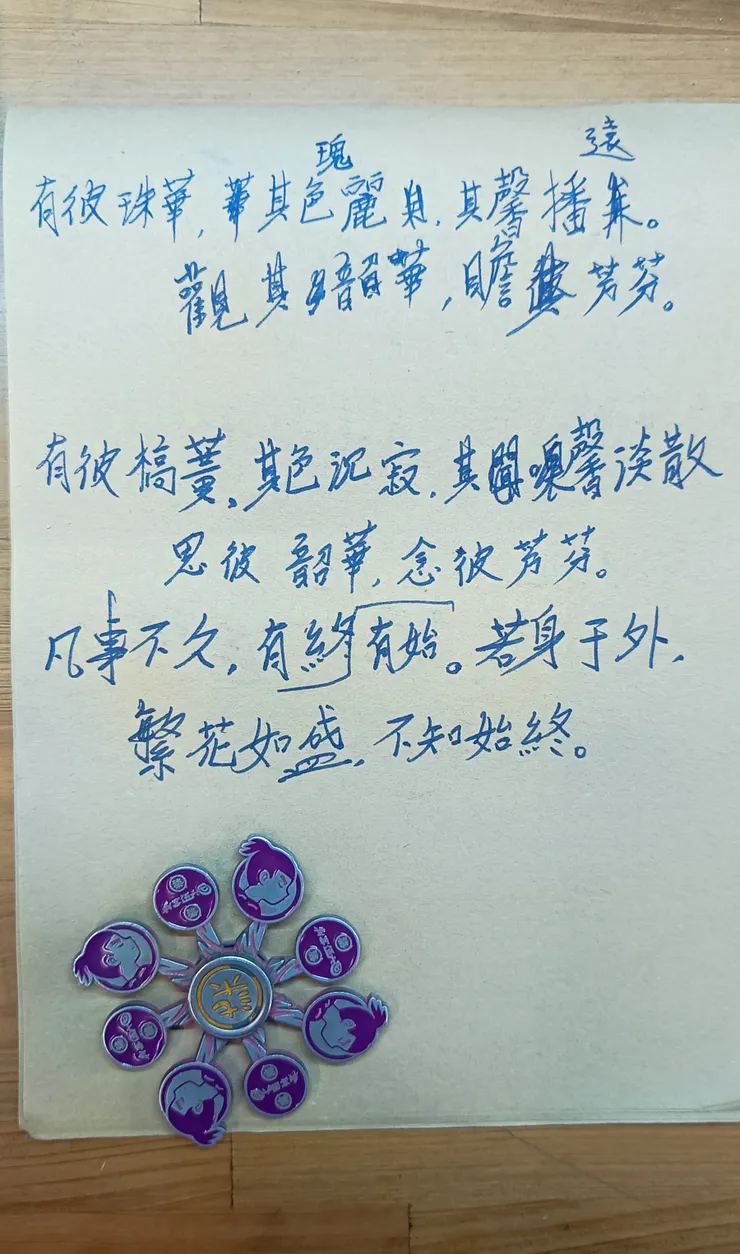 瑰 遠
有彼珠華,其色麗,其馨播。
觀其韶華,瞻芳芬。
有彼槁蕢,其色沉寂,其馨淡散
思彼韶華,念彼芳芬。
凡事不久,有終有始。若身于外,
繁花如盛,不知始終。